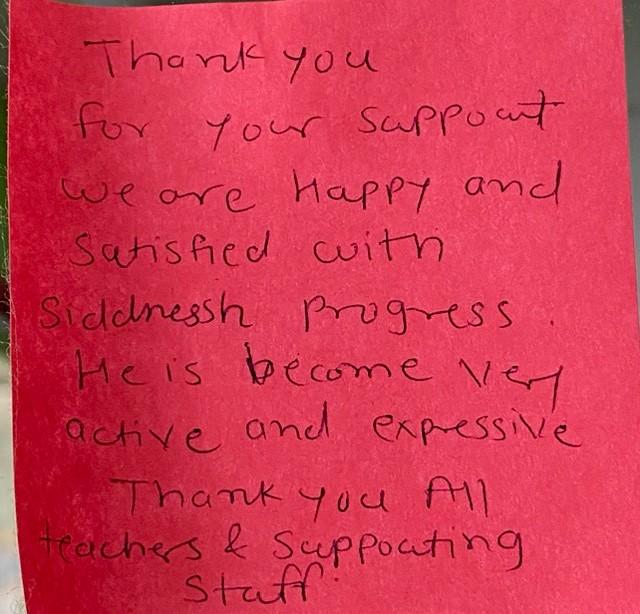 Thank you
for your suppout
we are Happy and
Satisfied with
Siddnessh progress.
He is become very
active and expressive
Thank you All
teachers & Suppouting
Staff.